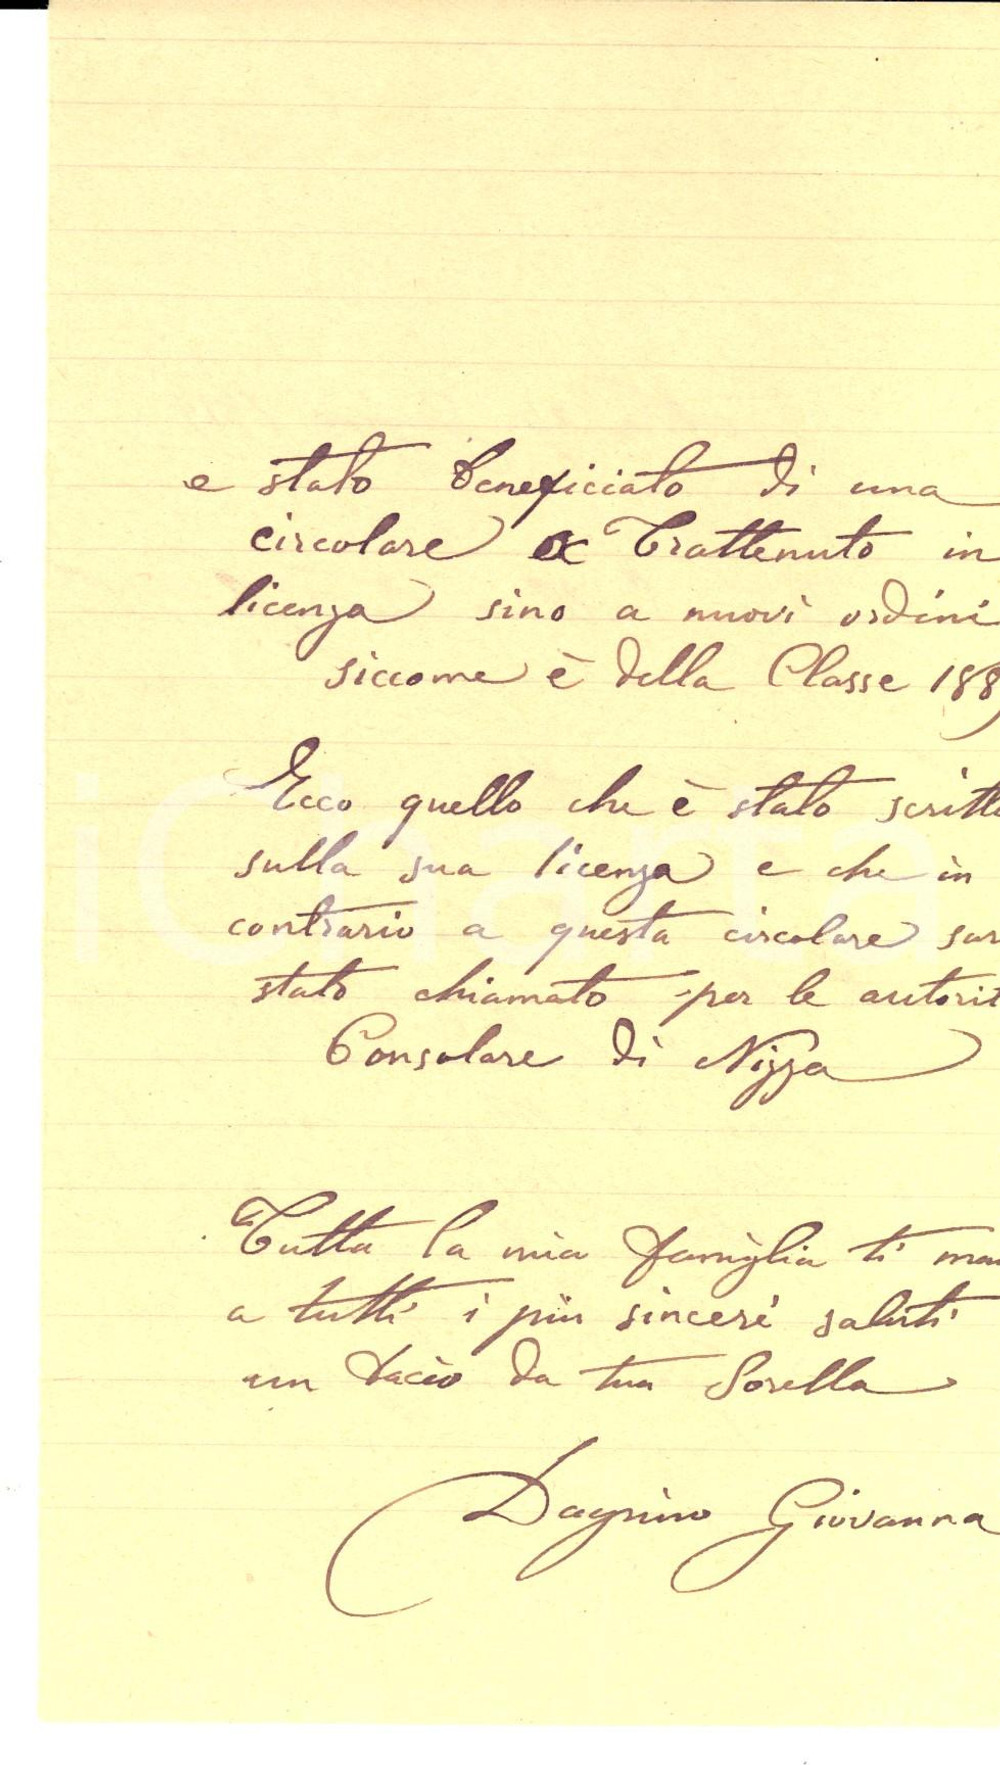 e stato beneficiato di una
circolare e Trattenuto in
licenza sino a nuovi ordini
siccome è della Classe 188
Ecco quello che è stato scritto
sulla sua licenza e che in
contrario a questa circolare sar
stato chiamato per le autorit
Consolare di Nizza
Tutta la mia famiglia ti man
a tutti i più sinceri saluti
un bacio da tua Sorella
Dagnino Giovanna